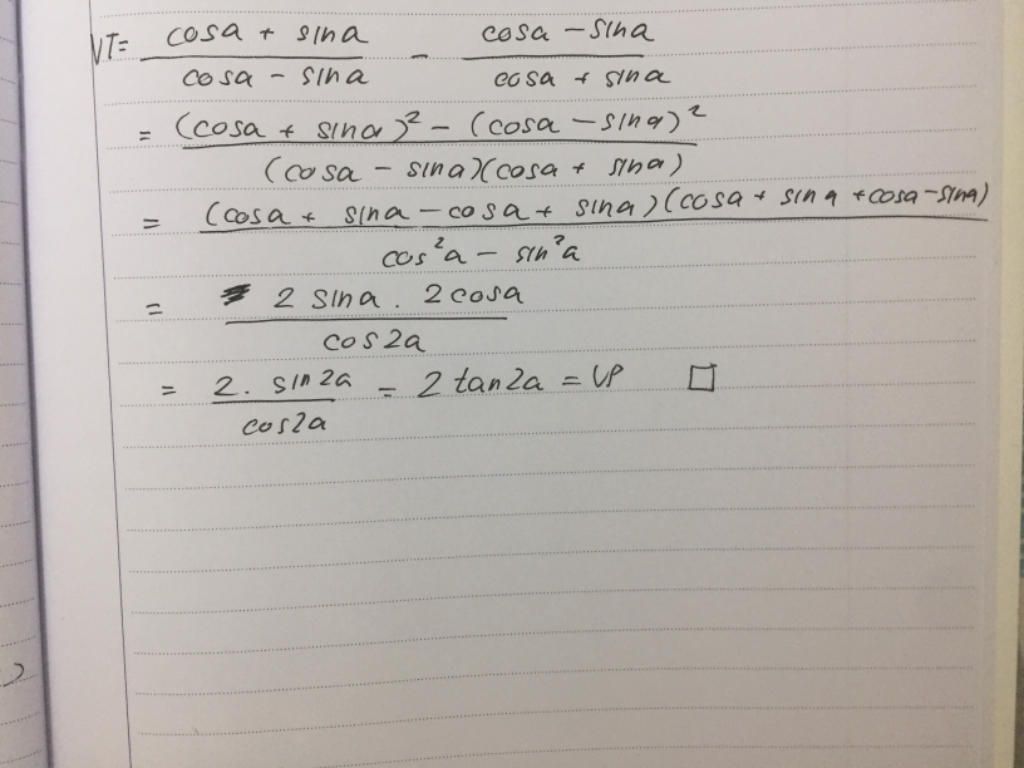 VT= (cosa + sina)/(cosa - sina) - (cosa - sina)/(cosa + sina)
= ((cosa + sina)² - (cosa - sina)²)/((cosa - sina)(cosa + sina))
= ((cosa + sina - cosa + sina)(cosa + sina + cosa - sina))/(cos²a - sin²a)
= (2 sina . 2cosa)/(cos2a)
= (2. sin2a)/(cos2a) = 2 tan2a = VP □